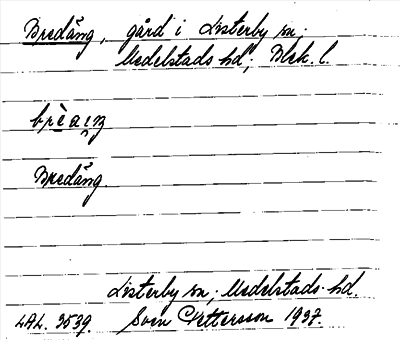 Bredång, gård i Listerby sn;
Medelstads hd; Blek. l.
Bredång.
Listerby sn; Medelstads hd.
LAL. 3539. Sven Pettersson 1937.